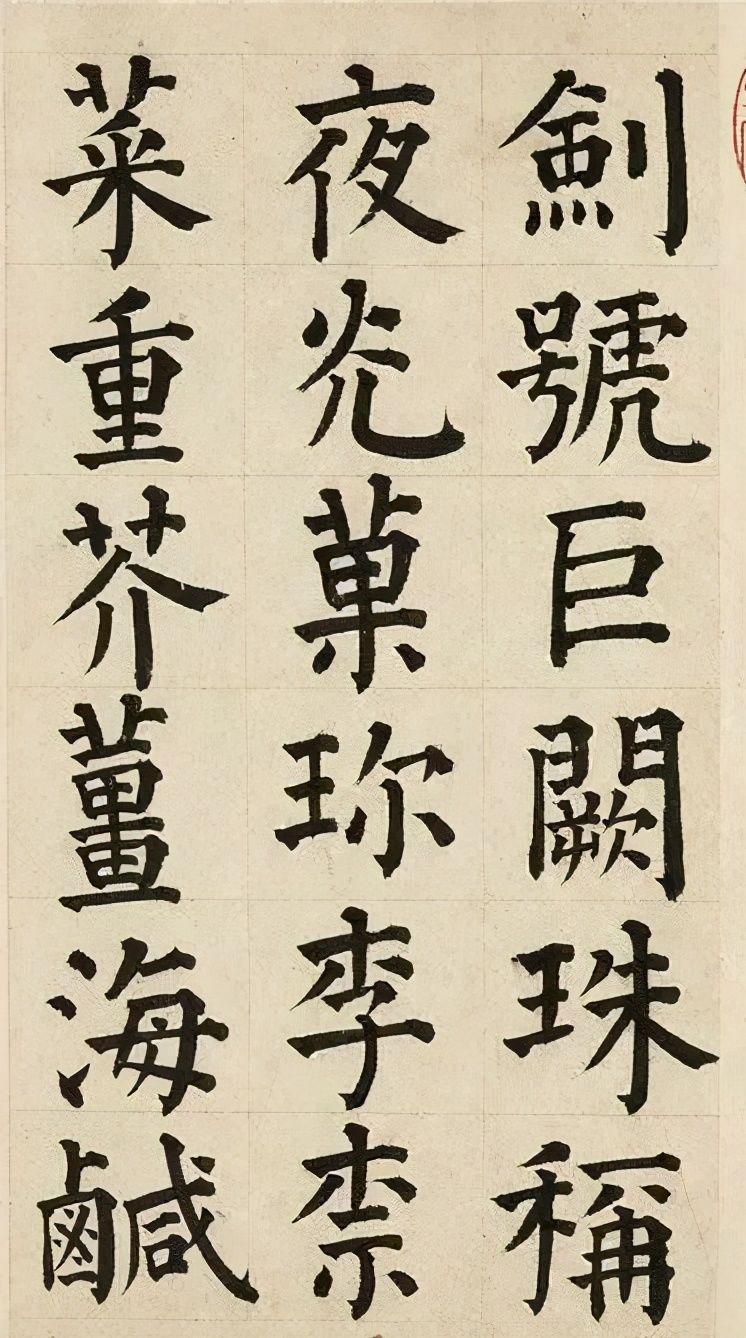 劍號巨闕珠稱
夜光菓珎李柰
菜重芥薑海鹹